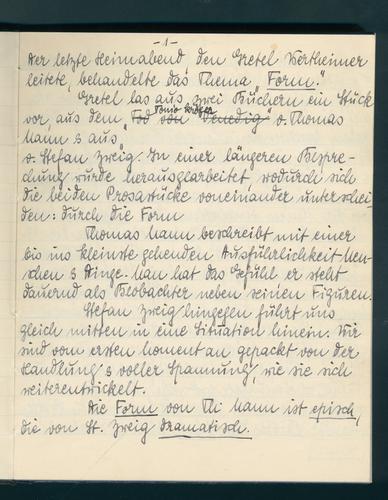 - 1 -
Der letzte Heimabend, den Gretel Wertheimer
leitete, behandelte das Thema „Form."
Gretel las aus zwei Büchern ein Stück
vor, aus dem „Tod von Venedig" v. Thomas
Tonio Kröger
Mann & aus „
v. Stefan Zweig. In einer längeren Bespre-
chung wurde herausgearbeitet, wodurch sich
die beiden Prosastücke voneinander unterschei-
den: durch die Form
Thomas Mann beschreibt mit einer
bis ins kleinste gehenden Ausführlichkeit Men-
schen & Dinge. Man hat das Gefühl er steht
dauernd als Beobachter neben seinen Figuren.
Stefan Zweig hingegen führt uns
gleich mitten in eine Situation hinein. Wir
sind vom ersten Moment an gepackt von der
Handlung & voller Spannung, wie sie sich
weiterentwickelt.
Die Form von Th. Mann ist episch,
die von St. Zweig dramatisch.